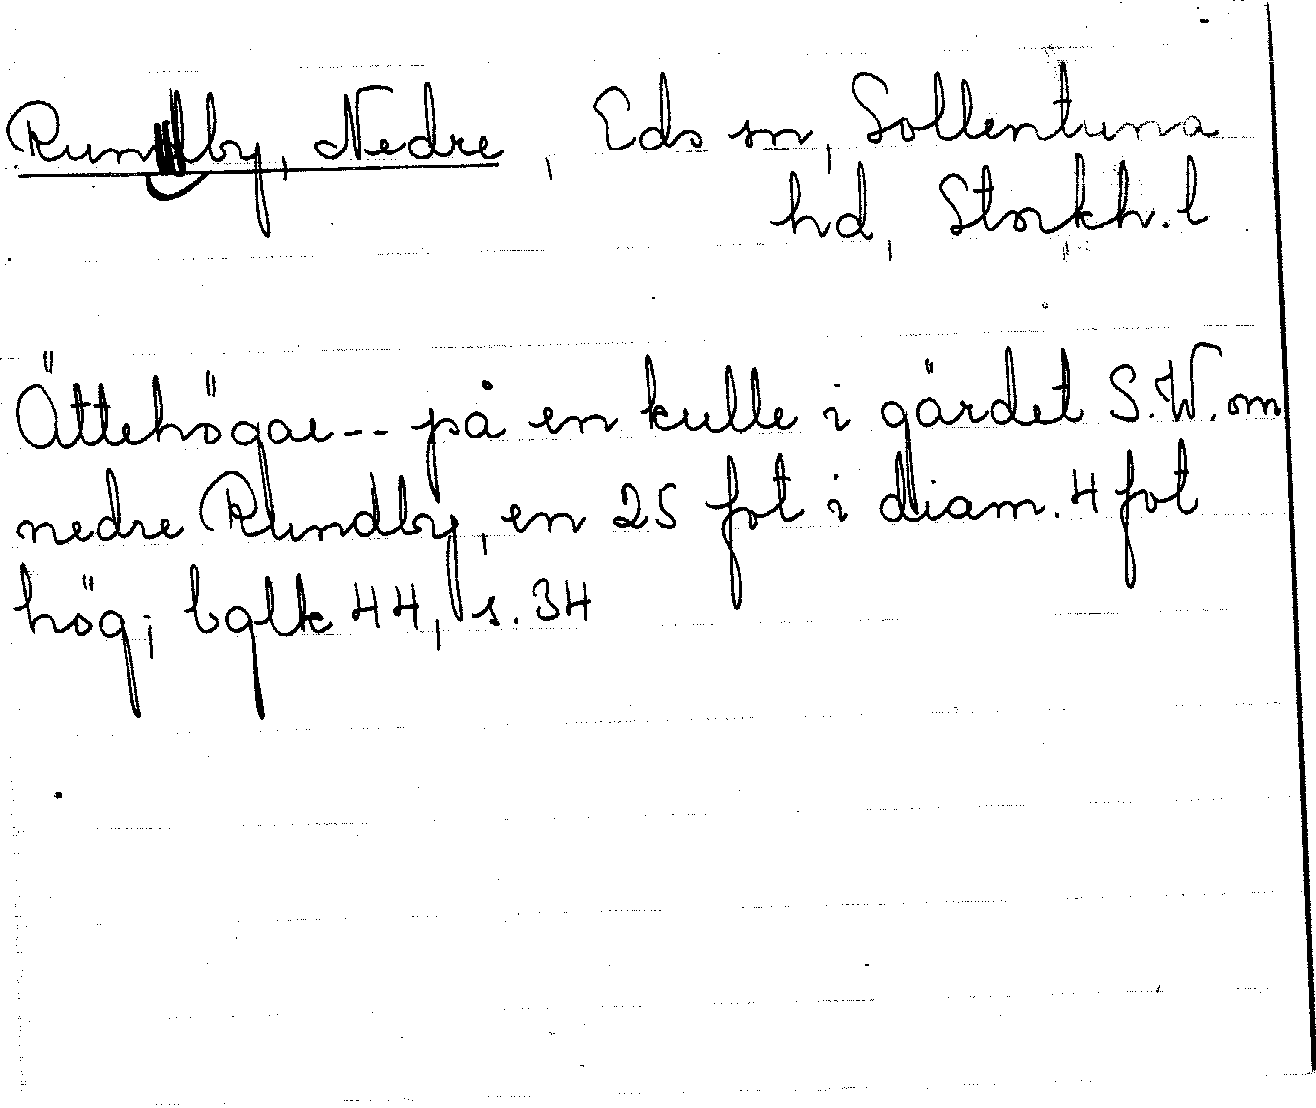 Runby, Nedre, Eds sn, Sollentuna
hd, Stockh. l
Ättehögar-- på en kulle i gärdet S.W. om
nedre Rundby, en 25 fot i diam. 4 fot
hög; bglk 44, s. 34